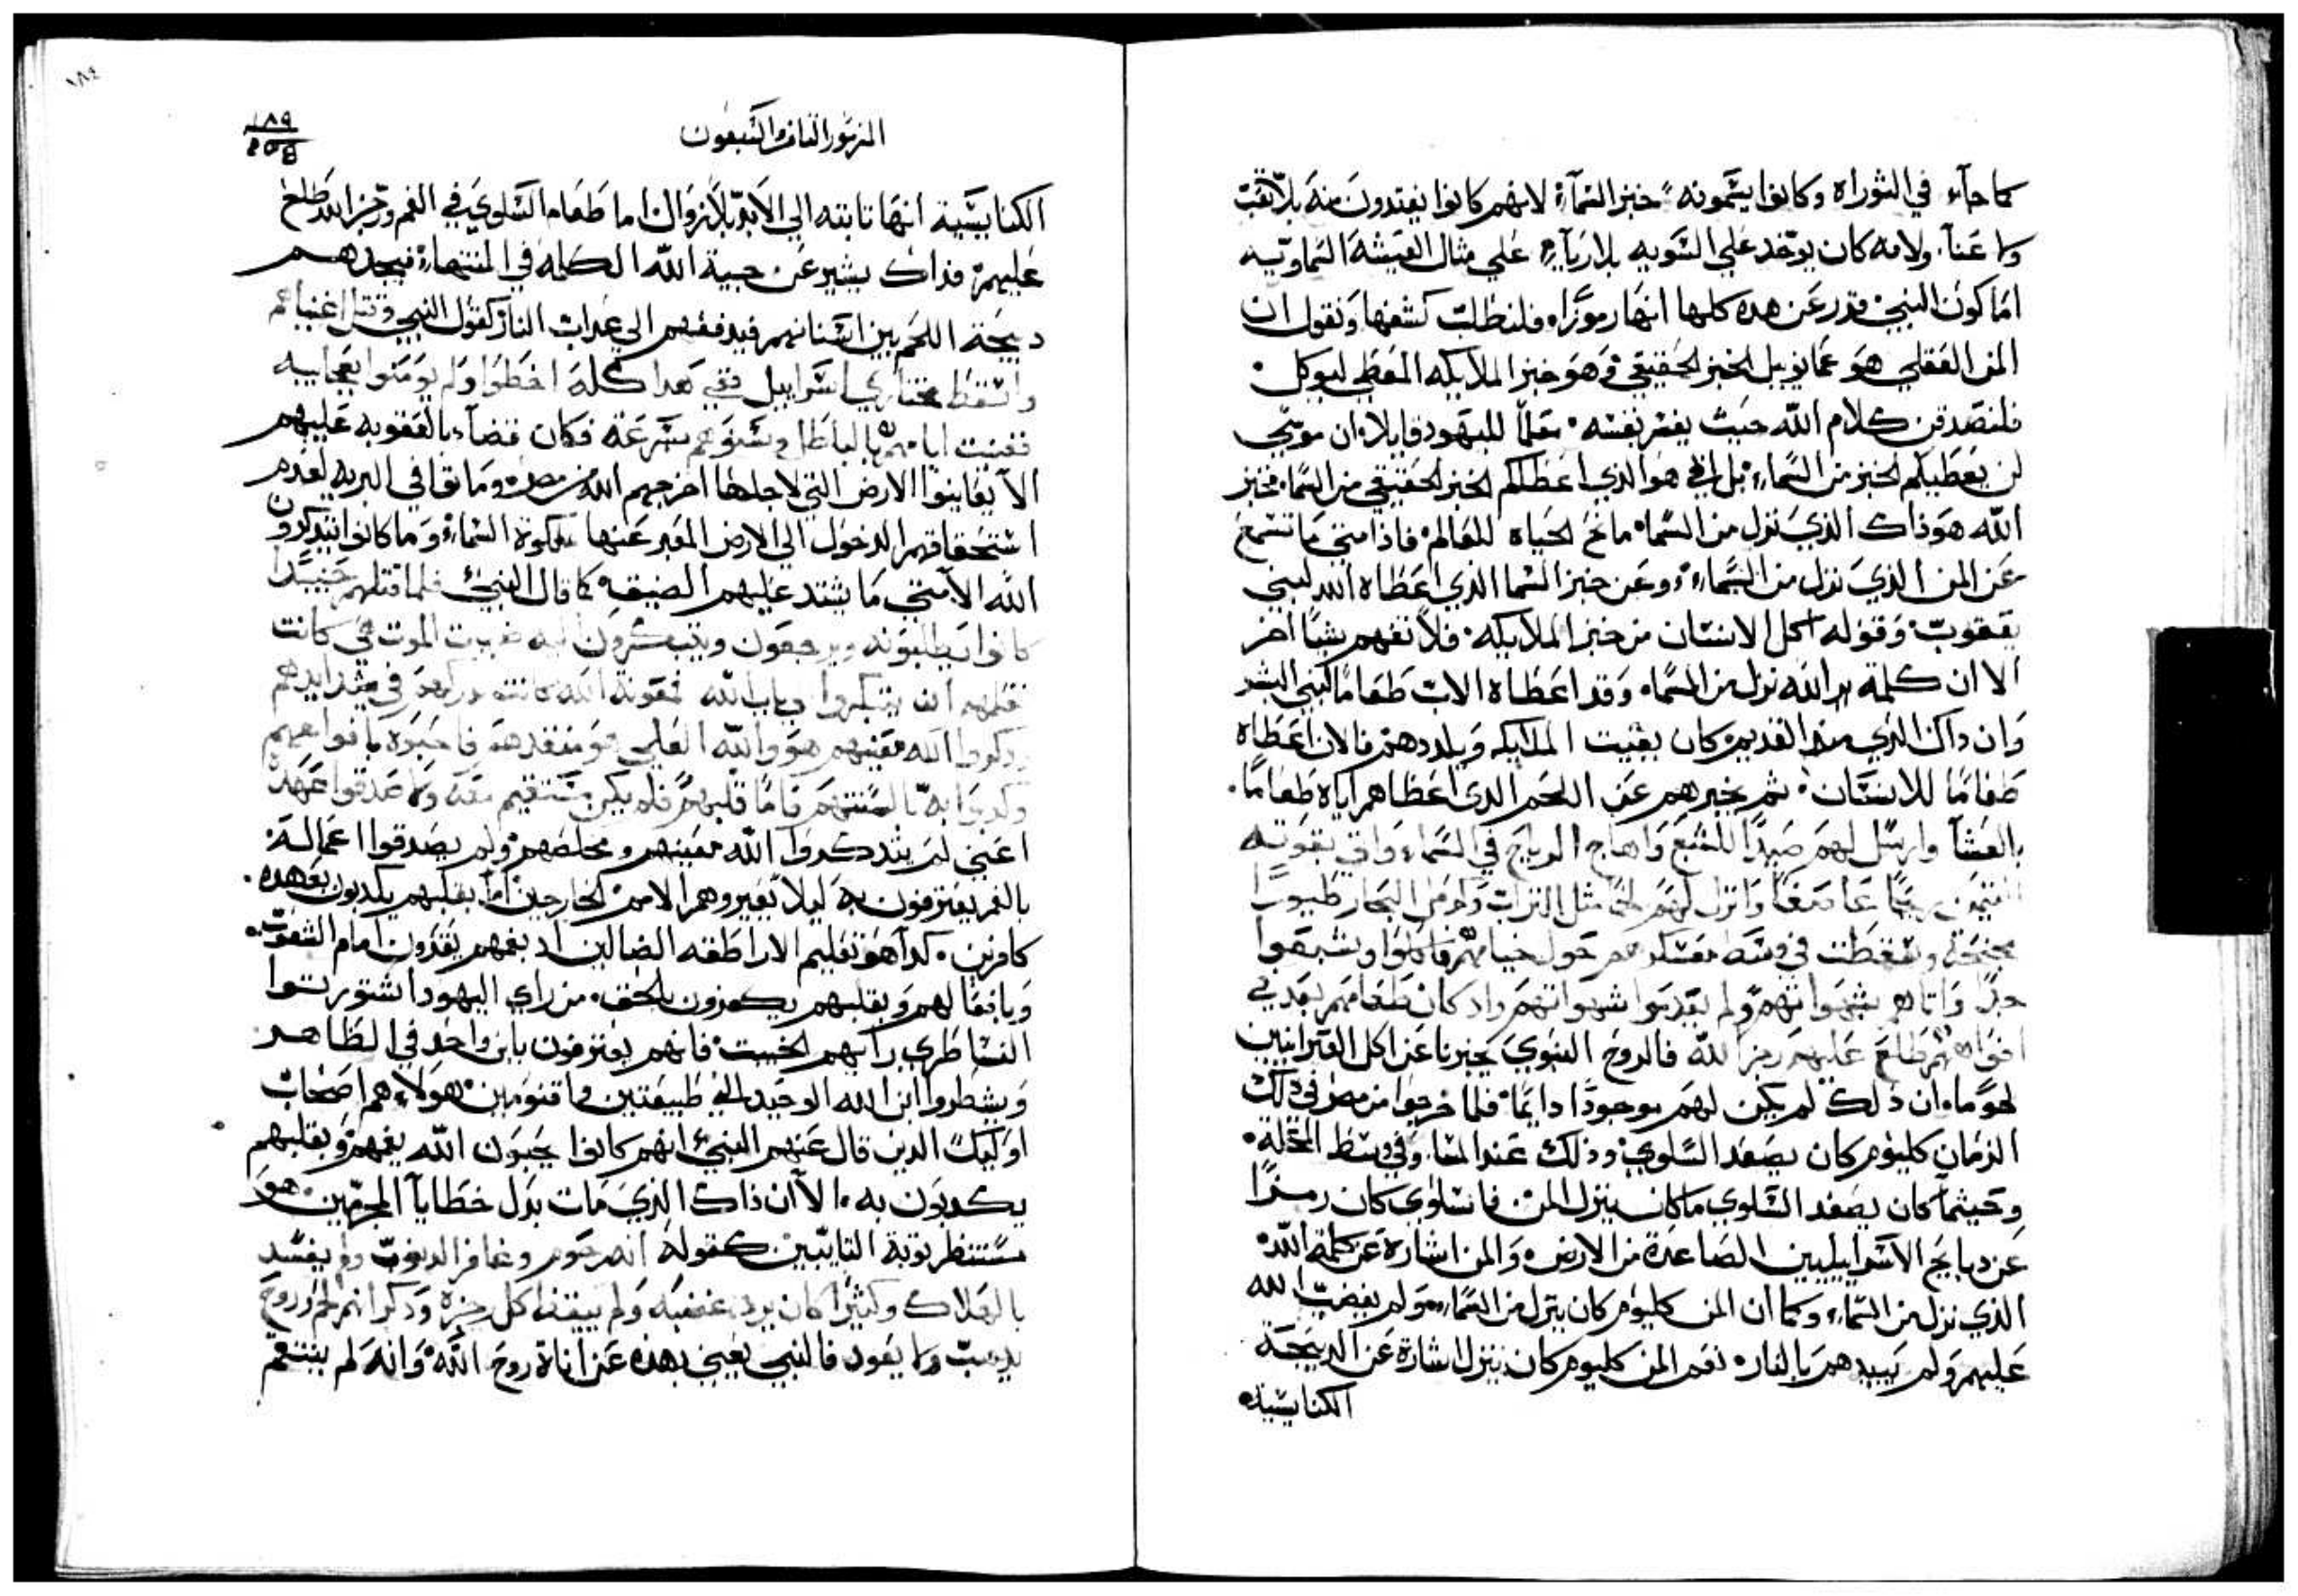 كما جآء في التوراه وكانوا يسَمونه خبز السَمآء لانهم كانوا يغتدون منه بلا تعَب
ولا عَنآ. ولانه كان يوخد علي السَويه بلا رياء علي مثال العيشه السَماويه
اما كون النبي قدر عَن هده كلها انها رموزاً، فلنطلب كشفها ونقول ان
المن العَقلي هو عَمانويل الخبز الحقيقي وهو خبز الملايكه المعَطي ليوكل.
فلنصَدقن كلام الله حيث يفسر نفسه. معَلماً لليهود قايلا، ان موسَي
لن يعَطيكم الخبز من السَماء، بل ابي هو الذي اعَطاكم الخبز الحقيقي من السَما، فخبز
الله هو ذاك الذي نزل من السَماء مانح الحياه للعَالم، فاذا متي ما تسَمع
عَن المن الذي نزل من السَماء، وعَن خبز السَما الذي اعَطاه الله لبني
يعَقوب، وقوله اكل الانسَان من خبز الملايكه. فلا تفهم شيا اخر
الا ان كلمة الله نزل من السَماء وقد اعَطاه الاب طعَاماً لبني البشر
وان داك الذي منذ القديم كان يقيت الملايكه ويلددهم فالان اعَطاه
طعَامًا للانسَان. ثم يخبرهم عَن اللحم الدي اعَطاهم اياه طعَامًا.
بالعَشآ وارسَل لهم صَيدًا للشبع واهاج الرياح في السَماء واتي بقوته
وانزل لهم لحمًا مثل التراب ومثل رمل البحار طيورًا
مجنحة وسَقطت في وسَط معَسكرهم حول خيامهم فاكلوا وشبعَوا
جدًا واتاهم بشهواتهم ولم يعَدموا شهواتهم واد كان طعَامهم بعَد في
افواههم طلع عَليهم رجز الله فالروح النبوي يخبرنا عَن اكل العَبرانيين
لحومًا، ان ذلك لم يكن لهم موجودًا دايمًا، فلما خرجوا من مصَر في ذلك
الزمان كليوم كان يصَعَد السَلوي، وذلك عَند المسَا، وفي وسَط المحلة.
وحيثما كان يصَعَد السَلوي ما كان ينزل المن فالسَلوي كان رمزًا
عَن دبايح الاسَراييليين الصَاعَدة من الارض، والمن اشارة عَن كلمة الله
الذي نزل من السَماء، وكما ان المن كليوم كان ينزل من السَماء، ولم يغضب الله
عَليهم ولم يبيدهم بالنار، نعَم المن كليوم كان ينزل اشارة عَن الدبيحة
الكنايسَيه
المزمور السَابع والسَبعَون
١٨٩
الكنايسَية انها تابته الي الابد بلا زوال، اما طعَام السَلوي في الفم ورجز الله طلع
عَليهم، فذاك يشير عَن جية الله الكلمه في المنتهاء، فيجدهم
دبيحة اللحم بين اسَنانهم فيدفعَهم الي عَداب النار، كقول النبي وقتل اغنياهم
واسَقط مختاري اسَراييل ففي هدا كله اخطوا ولم يومنوا بعَجايبه
ففنيت ايامهم بالباطل وسَنوهم بسَرعَة فكان قضآء بالعَقوبه عَليهم
الا يعَاينوا الارض التي لاجلها اخرجهم الله من مصَر، وماتوا في البريه لعَدم
اسَتحقاقهم الدخول الي الارض المعَبر عَنها ملكوة السَماء، وما كانوا يتدكرون
الله الا متي ما يشتد عَليهم الضيق، كما قال النبي فلما قتلهم حينيدًا
كانوا يطلبونه ويرجعَون ويبتكرون اليه
ودكروا الله معَينهم هو والله العَلي هو منقدهم فاحبوه بافواههم
وكدبوا به بالسَنتهم فاما قلبهم فلم يكن مسَتقيم معَه ولا صَدقوا عَهده
اعَني لم يتدكروا الله معَينهم ومخلصَهم، ولم يصَدقوا اعَماله
بالفم يعَترفون به ليلا يعَيروهم الامم الخارجين اما بقلبهم يكدبون بعَهده.
كافرين. كدا هو تعَليم الاراطقه الضالين اد بفمهم يقدون امام الشعَوب.
وبافعَالهم وبقلبهم يكفرون بالحق. من راي اليهود اسَتوريسَوا
النسَاطره برايهم الخبيت، فانهم يعَترفون بابن واحد في الظاهر
ويشطروا ابن الله الوحيد الي طبيعَتين واقنومين، هولاء هم اصَحاب
اوليك الدين قال عَنهم النبي، انهم كانوا يحبون الله بفمهم، وبقلبهم
يكدبون به، الا ان ذاك الذي مات بدل خطايآ المجرمين، هو
مسَتنظر توبة التايبين كقوله انه رحوم وغافر الدنوب ولم يفسَد
بالهلاك وكثيرًا كان يرد غضبه ولم ييقظ كل رجزه ودكر انهم لحم وروح
يدهب ولا يعَود فالنبي يعَني بهده عَن اناة روح الله، وانه لم ينتقم